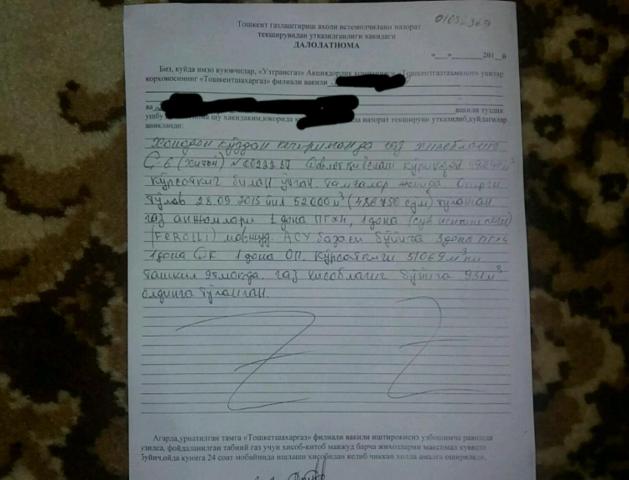 01032369
Тошкент газлаштириш ахоли истеъмолчилани назорат
текширувидан утказилганлиги хакидаги
ДАЛОЛАТНОМА
201__й
Биз, куйда имзо куювчилар, «Узтрансгаз» Акциядорлик
корхонасининг «Тошкентшахаргаз» филиали вакили
ва
вакили туздик
ушбу шу хакидаким,юкорида назорат текшируви утказилиб,куйдагилар
аникланди:
Хонадон кўздан кечирилганда газ хисоблагич
G-6 (Хитой) N
кўрсаткич билан ўчган. тамгалар жойида. Охирги
тўлов 28.09.2015 йил 52000 м³ сўм) тўланган
газ анжомлари 1 дона ПГ-4, 1 дона
(FEROLLI) мавжуд. АСУ базаси бўйича
1 дона ОК 1 дона ОП. Кўрсаткичи 51069 м³ни
ташкил этмокда. газ хисоблагич бўйича 931 м³
олдинга тўланган.
Агарда,урнатилган тамга «Тошкетшахаргаз» филиали вакили иштирокисиз узбошимча равишда
узилса, фойдаланилган табиий газ учун хисоб-китоб мавжуд барча жихозларни максимал куввати
буйич,ойда кунига 24 соат мобайнида ишлаши хисобидан келиб чиккан холда амалга оширилади.